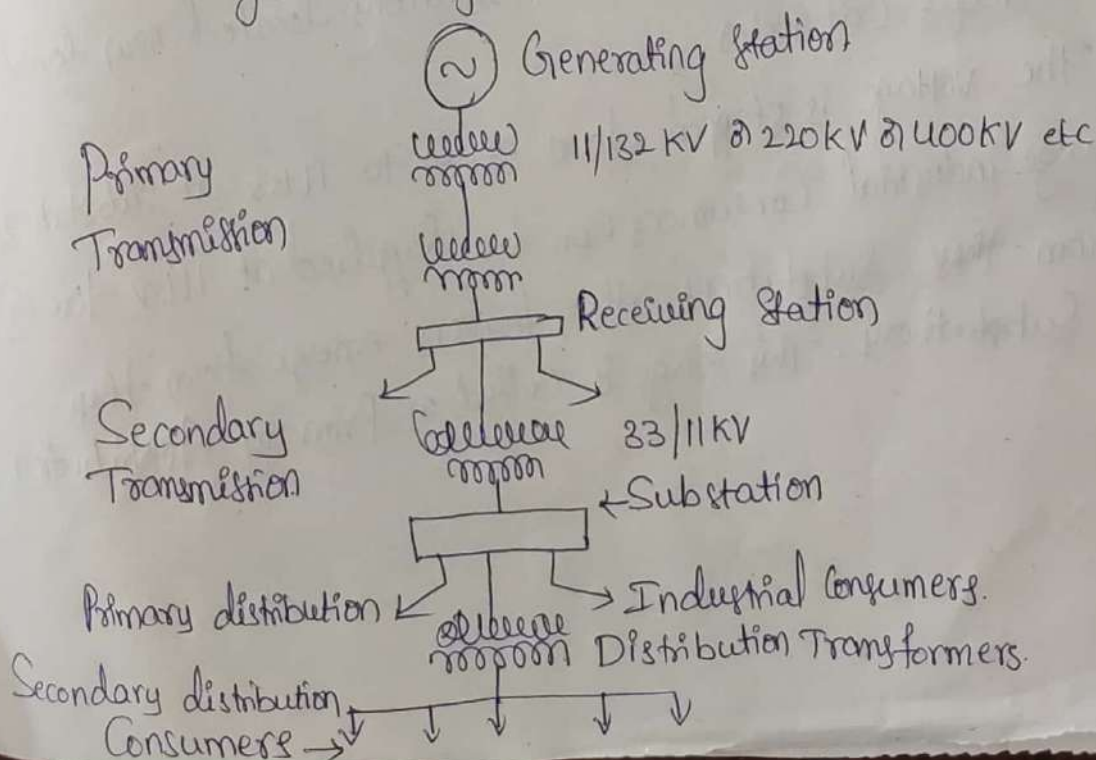 Generating Station
11/132 KV or 220KV or 400KV etc
Primary
Transmission
Receiving Station
Secondary
Transmission
33/11KV
Substation
Primary distribution
Industrial Consumers.
Distribution Transformers.
Secondary distribution
Consumers